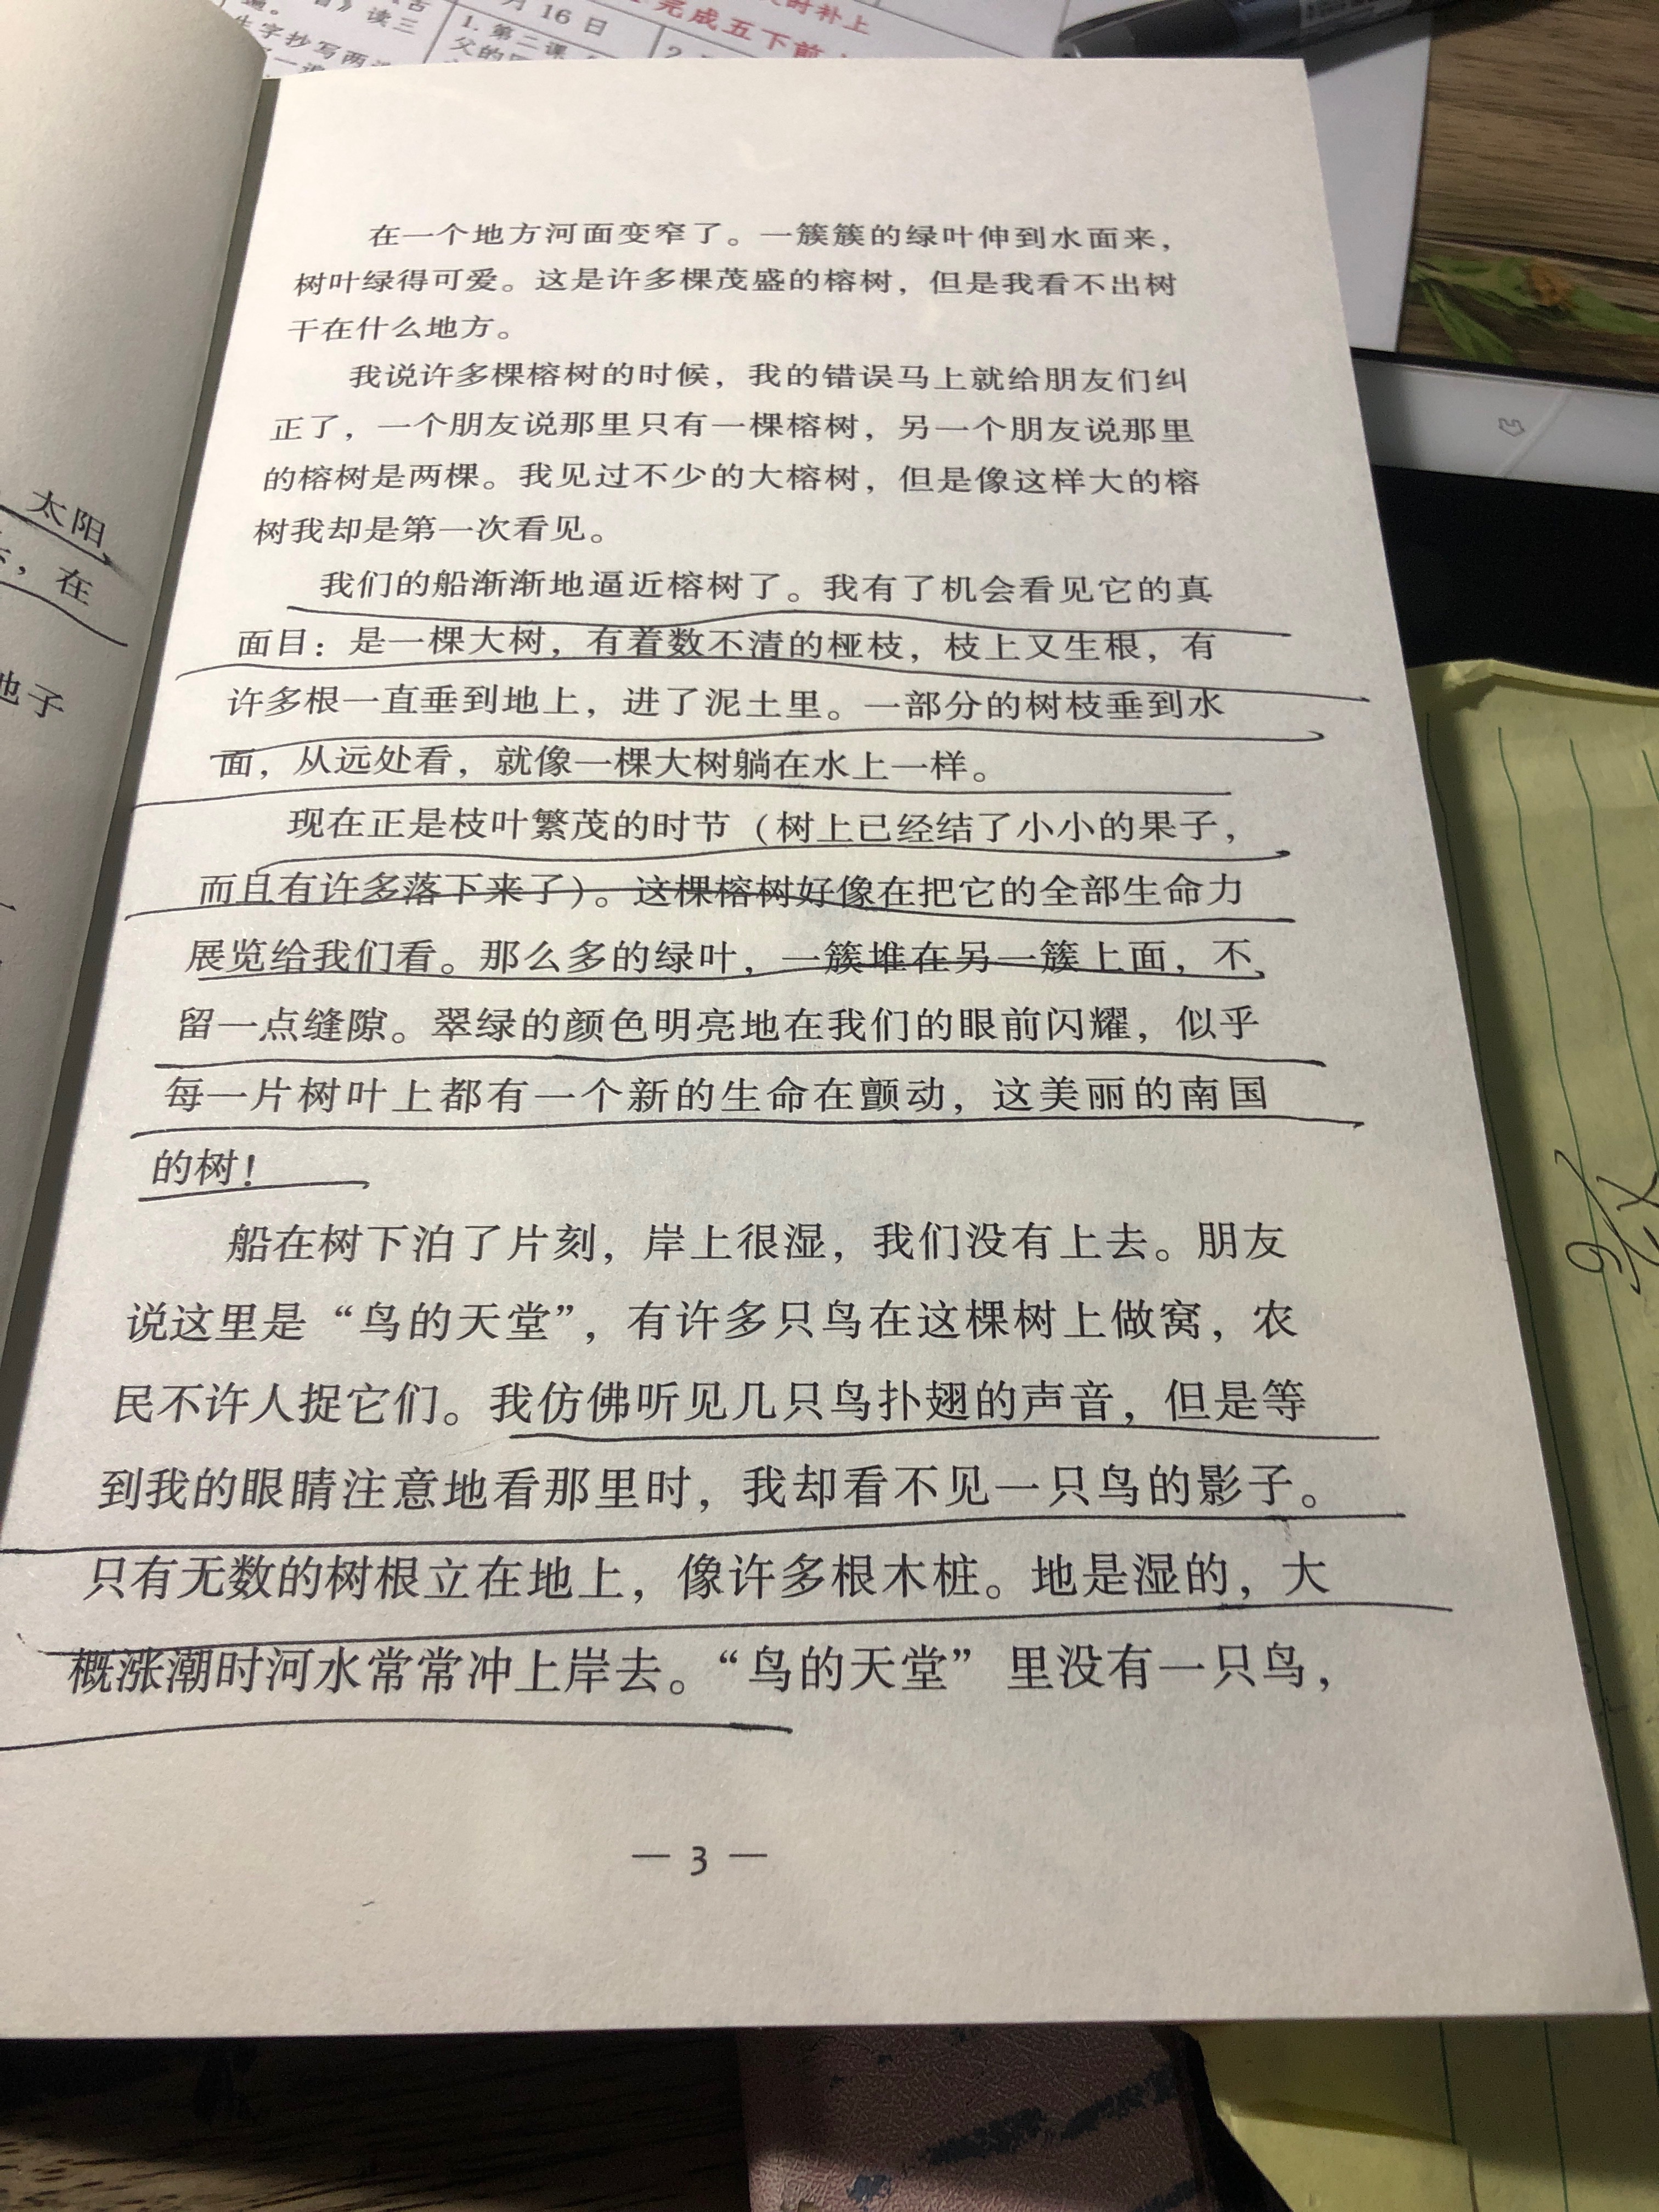 月 16 日
读三
1. 第二课
时补上
生字抄写两
父的
2.
完成五下前
太阳
，在
池子
在一个地方河面变窄了。一簇簇的绿叶伸到水面来，
树叶绿得可爱。这是许多棵茂盛的榕树，但是我看不出树
干在什么地方。
我说许多棵榕树的时候，我的错误马上就给朋友们纠
正了，一个朋友说那里只有一棵榕树，另一个朋友说那里
的榕树是两棵。我见过不少的大榕树，但是像这样大的榕
树我却是第一次看见。
我们的船渐渐地逼近榕树了。我有了机会看见它的真
面目：是一棵大树，有着数不清的桠枝，枝上又生根，有
许多根一直垂到地上，进了泥土里。一部分的树枝垂到水
面，从远处看，就像一棵大树躺在水上一样。
现在正是枝叶繁茂的时节（树上已经结了小小的果子，
而且有许多落下来了）。这棵榕树好像在把它的全部生命力
展览给我们看。那么多的绿叶，一簇堆在另一簇上面，不
留一点缝隙。翠绿的颜色明亮地在我们的眼前闪耀，似乎
每一片树叶上都有一个新的生命在颤动，这美丽的南国
的树！
船在树下泊了片刻，岸上很湿，我们没有上去。朋友
说这里是“鸟的天堂”，有许多只鸟在这棵树上做窝，农
民不许人捉它们。我仿佛听见几只鸟扑翅的声音，但是等
到我的眼睛注意地看那里时，我却看不见一只鸟的影子。
只有无数的树根立在地上，像许多根木桩。地是湿的，大
概涨潮时河水常常冲上岸去。“鸟的天堂”里没有一只鸟，
— 3 —